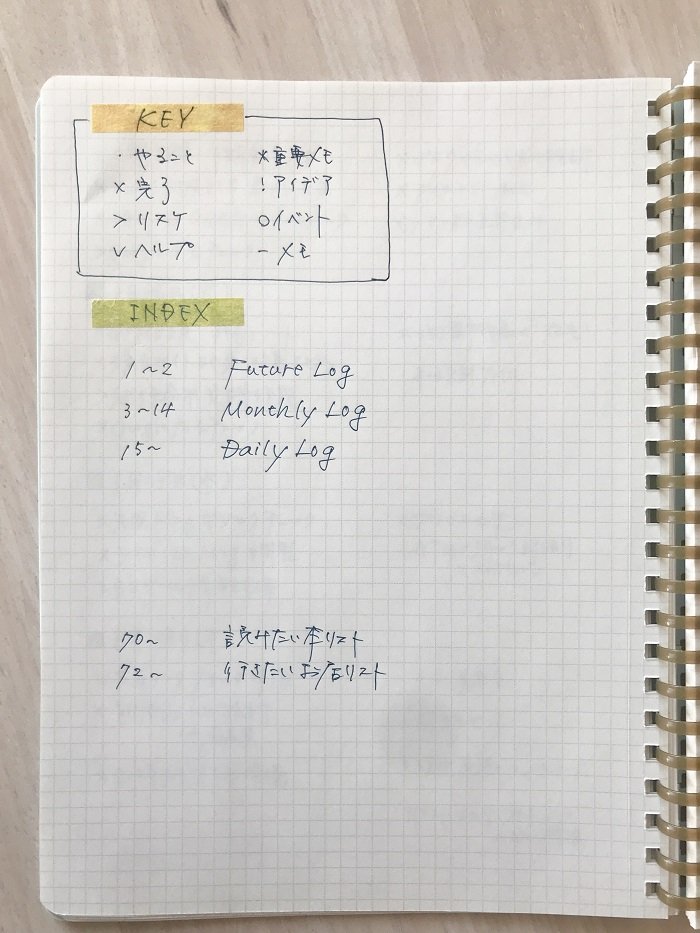 KEY
・やること ＊重要メモ
× 完了 ! アイデア
> リスケ ○イベント
∨ ヘルプ − メモ
INDEX
1~2 Future Log
3~14 Monthly Log
15~ Daily Log
70~ 読みたい本リスト
72~ 行きたいお店リスト